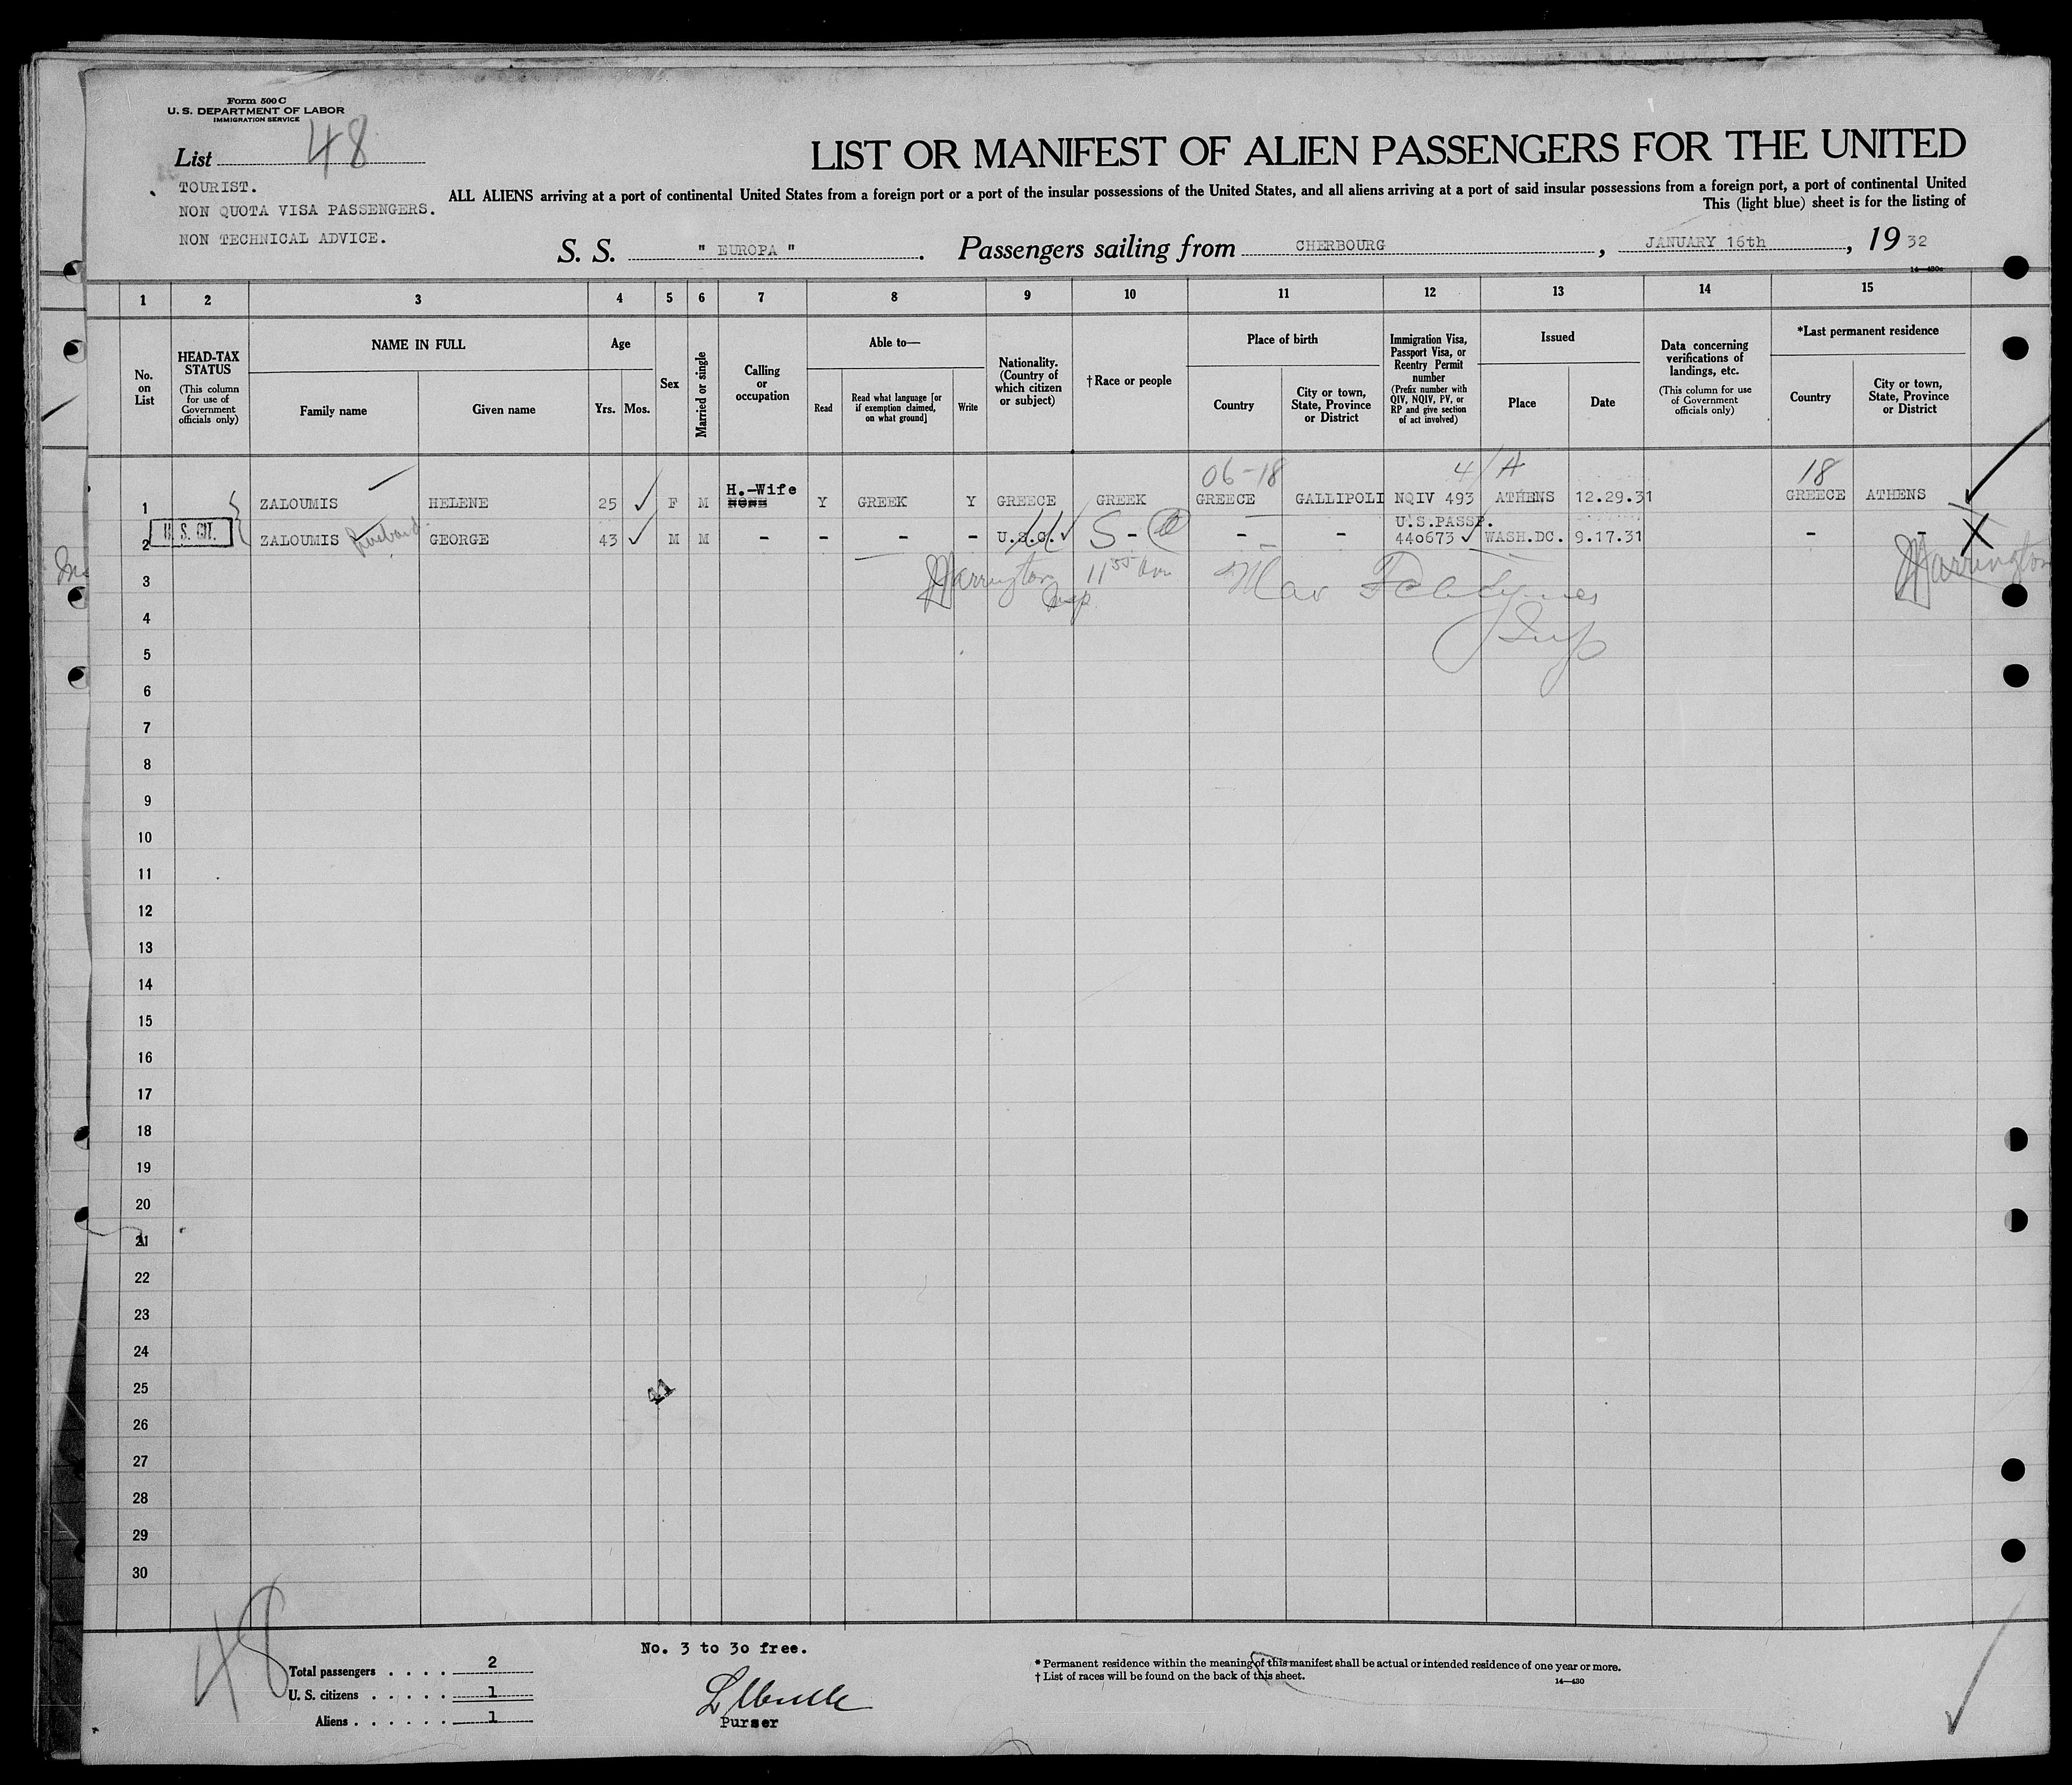 Form 500 C
U. S. DEPARTMENT OF LABOR
IMMIGRATION SERVICE
List 48
TOURIST.
NON QUOTA VISA PASSENGERS.
NON TECHNICAL ADVICE.
LIST OR MANIFEST OF ALIEN PASSENGERS FOR THE UNITED
ALL ALIENS arriving at a port of continental United States from a foreign port or a port of the insular possessions of the United States, and all aliens arriving at a port of said insular possessions from a foreign port, a port of continental United
This (light blue) sheet is for the listing of
S. S. " EUROPA ". Passengers sailing from CHERBOURG, JANUARY 16th, 19 32
14—430c
1 2 3 4 5 6 7 8 9 10 11 12 13 14 15
No. on List
HEAD-TAX STATUS (This column for use of Government officials only)
NAME IN FULL
Family name
Given name
Age
Yrs. Mos.
Sex
Married or single
Calling or occupation
Able to—
Read
Read what language [or if exemption claimed, on what ground]
Write
Nationality. (Country of which citizen or subject)
†Race or people
Place of birth
Country
City or town, State, Province or District
Immigration Visa, Passport Visa, or Reentry Permit number (Prefix number with QIV, NQIV, PV, or RP and give section of act involved)
Issued
Place
Date
Data concerning verifications of landings, etc. (This column for use of Government officials only)
*Last permanent residence
Country
City or town, State, Province or District
06-18 4/A 18
H.-Wife
1 ZALOUMIS HELENE 25 ✓ F M NONE Y GREEK Y GREECE GREEK GREECE GALLIPOLI NQIV 493 ATHENS 12.29.31 GREECE ATHENS
U.S.PASSP.
2 U. S. CIT. ZALOUMIS husband GEORGE 43 ✓ M M - - - - U.S.C. ✓ S - - - 440673 ✓ WASH.DC. 9.17.31 - - X
3 Harrington 11 55 Am Harrington
Insp.
4
Insp
5
6
7
8
9
10
11
12
13
14
15
16
17
18
19
20
21
22
23
24
25
26
27
28
29
30
48
No. 3 to 30 free.
Total passengers . . . . 2
U. S. citizens . . . . . 1
Aliens . . . . . . 1
Purser
* Permanent residence within the meaning of this manifest shall be actual or intended residence of one year or more.
† List of races will be found on the back of this sheet.
14—430